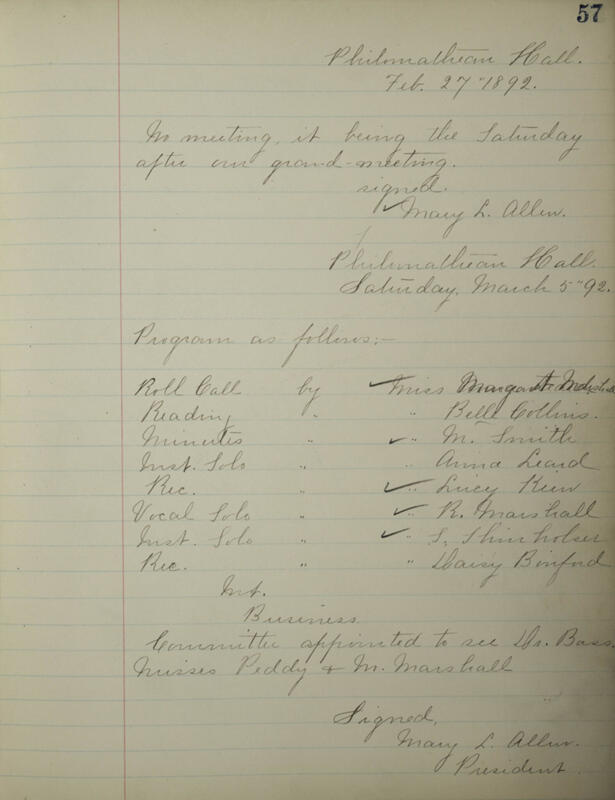 57
Philomathean Hall.
Feb. 27 "1892.
No meeting, it being the Saturday
after our grand-meeting.
signed.
✓ Mary L. Allen.
Philomathean Hall.
Saturday, March 5 "92.
Program as follows:—
Roll Call by ✓ Miss Margaret
Reading " " Belle Collins.
Minutes " ✓ " M. Smith
Inst. Solo " " Anna Leard
Rec. ✓ " Lucy Keen
Vocal Solo " ✓ " R. Marshall
Inst. Solo " ✓ " S. Shinholser
Rec. " " Daisy Binford
Int.
Business.
Committee appointed to see Dr. Bass.
Misses Peddy + M. Marshall
Signed,
Mary L. Allen.
President.